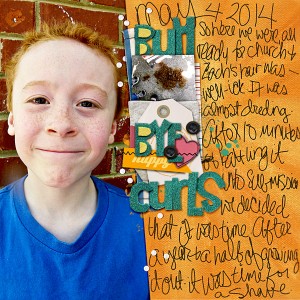 may 4 2014
BUH
BYE
happy
curls
So here we were, all
ready for church &
Zach's hair was
well - ick. It was
almost dreading.
After 10 minutes
of
it
into submission
we decided
that it was time. After
a year & a half of growing
it out it was time for
a shave